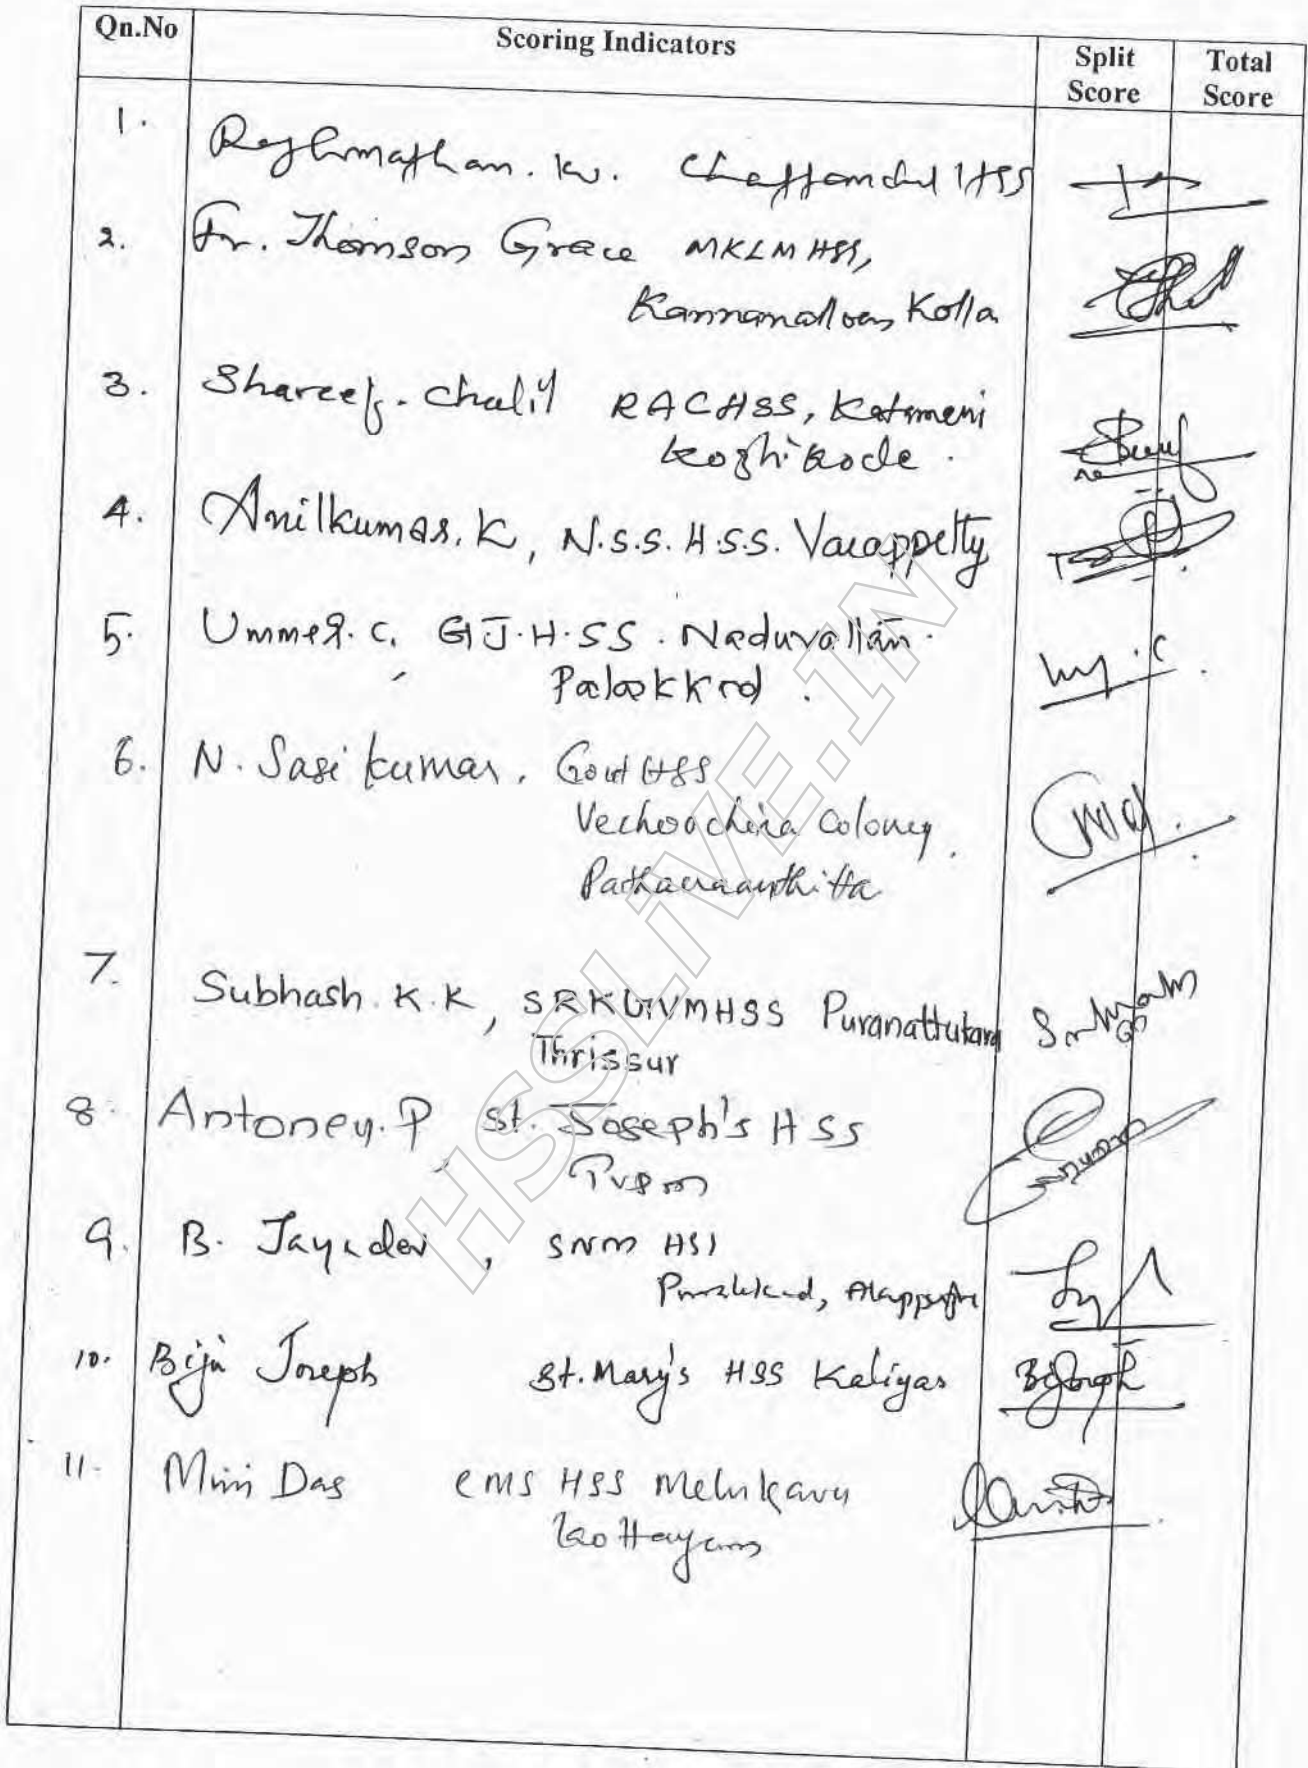 Qn.No Scoring Indicators Split Score Total Score
1. HSS
2. Fr. Thomson Grace MKLM HSS,
Kannanalloor, Kolla
3. Shareef. Chalil RACHSS, Katameri
Kozhikode.
4. Anilkumar. K, N.S.S. H.S.S. Varappetty
5. Ummer. C. GJ.H.SS. Naduvattam.
Palakkad.
6. N. Sasi kumar. Govt HSS
Vechoochira Colony.
Pathanamthitta
7. Subhash. K. K, SRKGVMHSS Puranattukara
Thrissur
8. Antoney. P, St. Joseph's HSS
Tvpm
9. B. Jayadev, SNM HSS
Purakkad, Alappuzha
10. Biju Joseph St. Mary's HSS Kaliyar
11. Mini Das CMS HSS Melukavu
Kottayam
HSSLiVE.IN